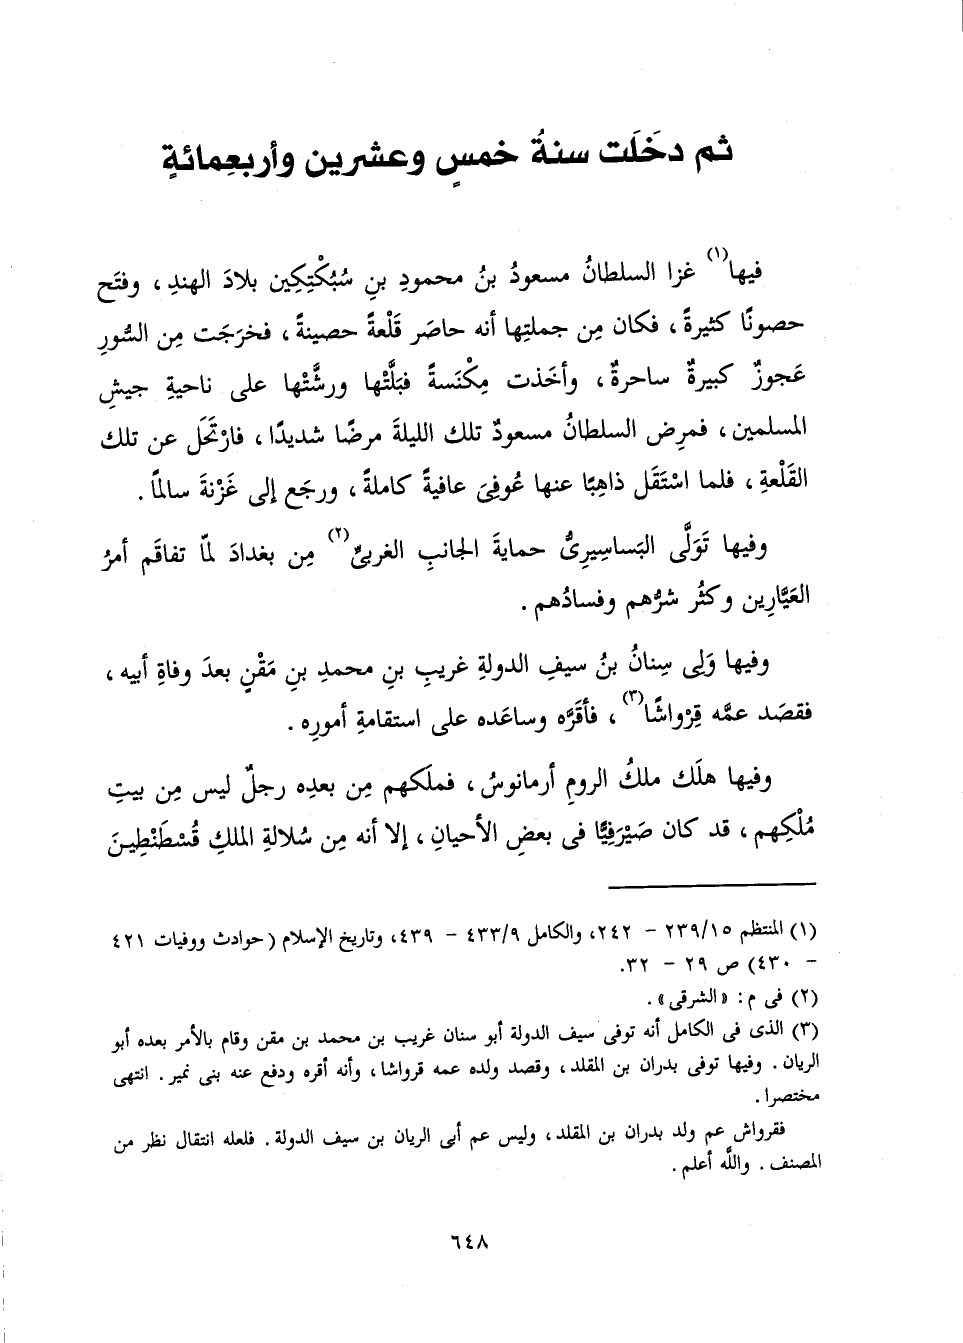 ثم دخَلَت سنةُ خمسٍ وعشرين وأربعِمائةٍ
فيها(١) غزا السلطانُ مسعودُ بنُ محمودِ بنِ سُبُكْتِكِين بلادَ الهندِ ، وفتَح
حصونًا كثيرةً ، فكان مِن جملتِها أنه حاصَر قَلْعةً حصينةً ، فخرَجَت مِن السُّورِ
عَجوزٌ كبيرةٌ ساحرةٌ ، وأخَذت مِكْنَسةً فبَلَّتْها ورشَّتْها على ناحيةِ جيشِ
المسلمين ، فمرِض السلطانُ مسعودٌ تلك الليلةَ مرضًا شديدًا ، فارْتَحَل عن تلك
القَلْعةِ ، فلما اسْتَقَل ذاهِبًا عنها عُوفِىَ عافيةً كاملةً ، ورجَع إلى غَزْنةَ سالمًا .
وفيها تَوَلَّى البَساسِيرِىُّ حمايةَ الجانبِ الغربىِّ(٢) مِن بغدادَ لمَّا تفاقَم أمرُ
العَيَّارِين وكثُر شرُّهم وفسادُهم .
وفيها وَلِى سِنانُ بنُ سيفِ الدولةِ غريبِ بنِ محمدِ بنِ مَقْنٍ بعدَ وفاةِ أبيه ،
فقصَد عمَّه قِرْواشًا(٣) ، فأقَرَّه وساعَده على استقامةِ أمورِه .
وفيها هلَك ملكُ الرومِ أرمانوسُ ، فملَكهم مِن بعدِه رجلٌ ليس مِن بيتِ
مُلْكِهم ، قد كان صَيْرَفِيًّا فى بعضِ الأحيانِ ، إلا أنه مِن سُلالةِ الملكِ قُسْطَنْطِينَ
(١) المنتظم ١٥/ ٢٣٩ - ٢٤٢، والكامل ٩/ ٤٣٣ - ٤٣٩، وتاريخ الإسلام (حوادث ووفيات ٤٢١
- ٤٣٠) ص ٢٩ - ٣٢.
(٢) فى م : « الشرقى » .
(٣) الذى فى الكامل أنه توفى سيف الدولة أبو سنان غريب بن محمد بن مقن وقام بالأمر بعده أبو
الريان . وفيها توفى بدران بن المقلد ، وقصد ولده عمه قرواشا ، وأنه أقره ودفع عنه بنى نمير . انتهى
مختصرا .
فقرواش عم ولد بدران بن المقلد ، وليس عم أبى الريان بن سيف الدولة . فلعله انتقال نظر من
المصنف . واللَّه أعلم .
٦٤٨